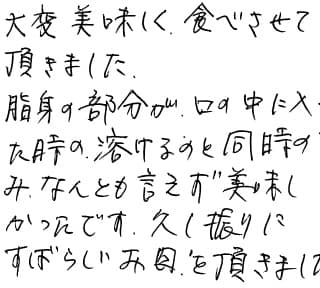 大変美味しく、食べさせて
頂きました。
脂身の部分が、口の中に入っ
た時の、溶けるのと同時の
み、なんとも言えず美味し
かったです。久し振りに
すばらしいお肉、を頂きまし